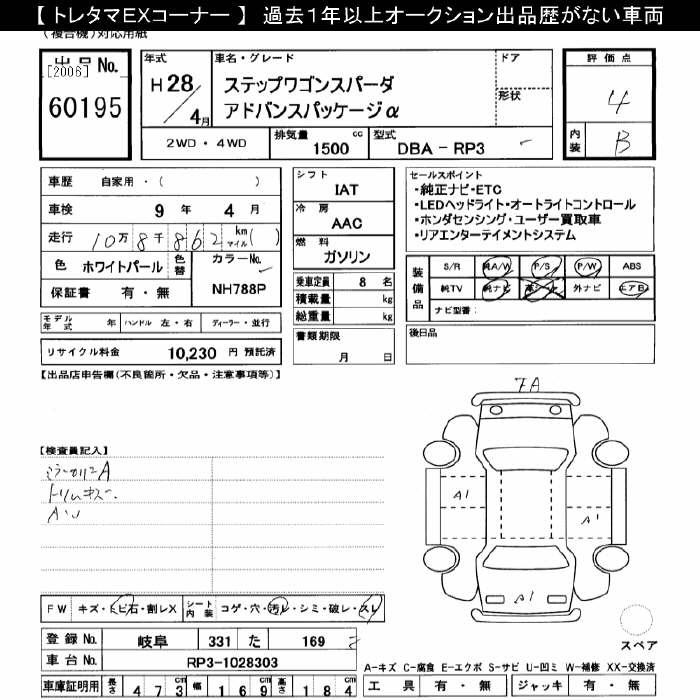 【 トレタマEXコーナー 】 過去1年以上オークション出品歴がない車両
(複合機)対応用紙
出品 No.
[2006]
60195
年式
H28/4月
車名・グレード
ステップワゴンスパーダ
アドバンスパッケージα
ドア
形状
評価点
4
内装
B
2WD ・ 4WD
排気量
1500 cc
型式
DBA － RP3
車歴 自家用・( )
車検 9 年 4 月
走行 10万8千862 km マイル( )
色 ホワイトパール
色替
カラーNo.
NH788P
保証書 有・無
シフト
IAT
冷房
AAC
燃料
ガソリン
セールスポイント
・純正ナビ・ETC
・LEDヘッドライト・オートライトコントロール
・ホンダセンシング・ユーザー買取車
・リアエンターテイメントシステム
装備品
S/R 純A/W P/S P/W ABS
純TV 純ナビ 革シート 外ナビ エアB
ナビ型番:
乗車定員 8 名
積載量 kg
総重量 kg
モデル年式 年 ハンドル 左・右 ディーラー・並行
リサイクル料金 10,230 円 預託済
書類期限
月 日
後日品
【出品店申告欄(不良箇所・欠品・注意事項等)】
7A
【検査員記入】
トリムキズ
A1
A1
A1
FW キズ・トビ石・割レX
シート内装 コゲ・穴・汚レ・シミ・破レ・スレ
登録 No. 岐阜 331 た 169
車台 No. RP3-1028303
スペア
A-キズ C-腐食 E-エクボ S-サビ U-凹ミ W-補修 XX-交換済
車庫証明用 長さ 473 cm 幅 169 cm 高さ 184 cm
工具 有・無 ジャッキ 有・無